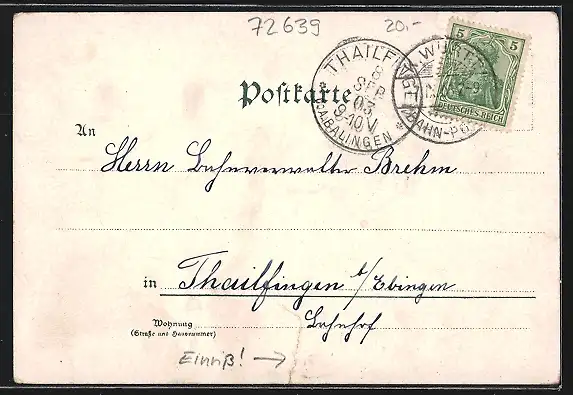 72639 20,-
5 5
DEUTSCHES REICH
THAILFINGEN
8
SEP
03
9-10 V
O.A. BALINGEN
K. WÜRTT.
BAHN-PO
Postkarte
An
Herrn Bahnverwalter Brehm
in Thailfingen b/Ebingen
Wohnung
(Straße und Hausnummer)
Bahnhof
Einriß! →